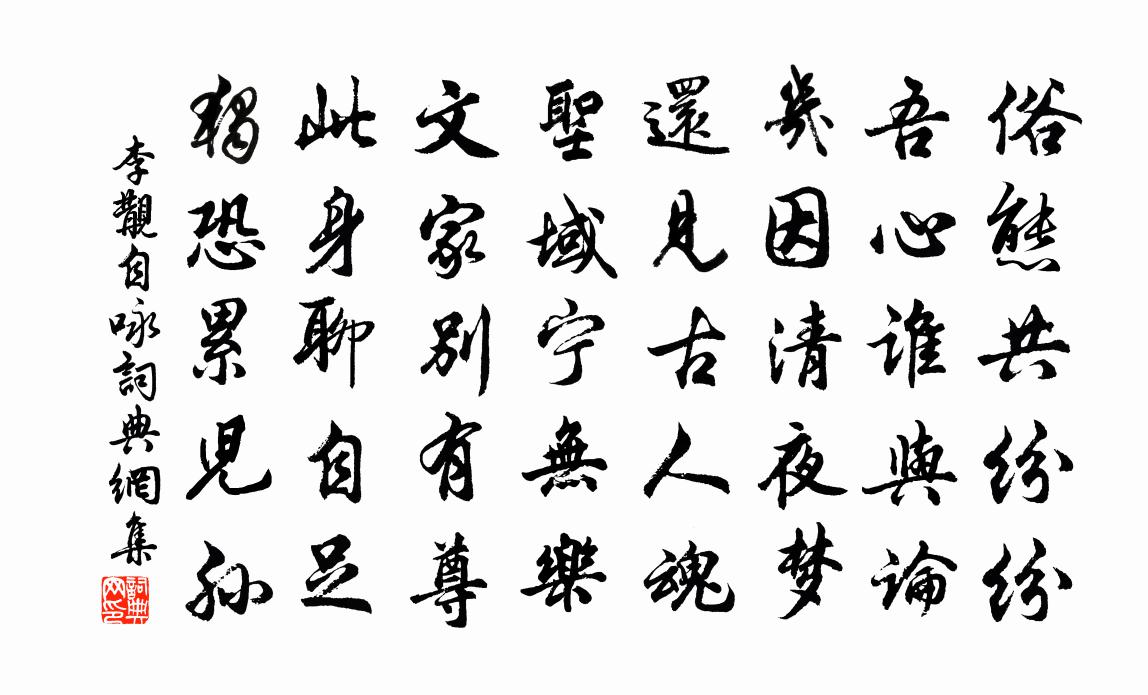 俗態共紛紛
吾心誰與論
幾因清夜梦
還見古人魂
聖域宁無樂
文家別有尊
此身聊自足
獨恐累児孫
李覯自咏詞典網集
詞典网印